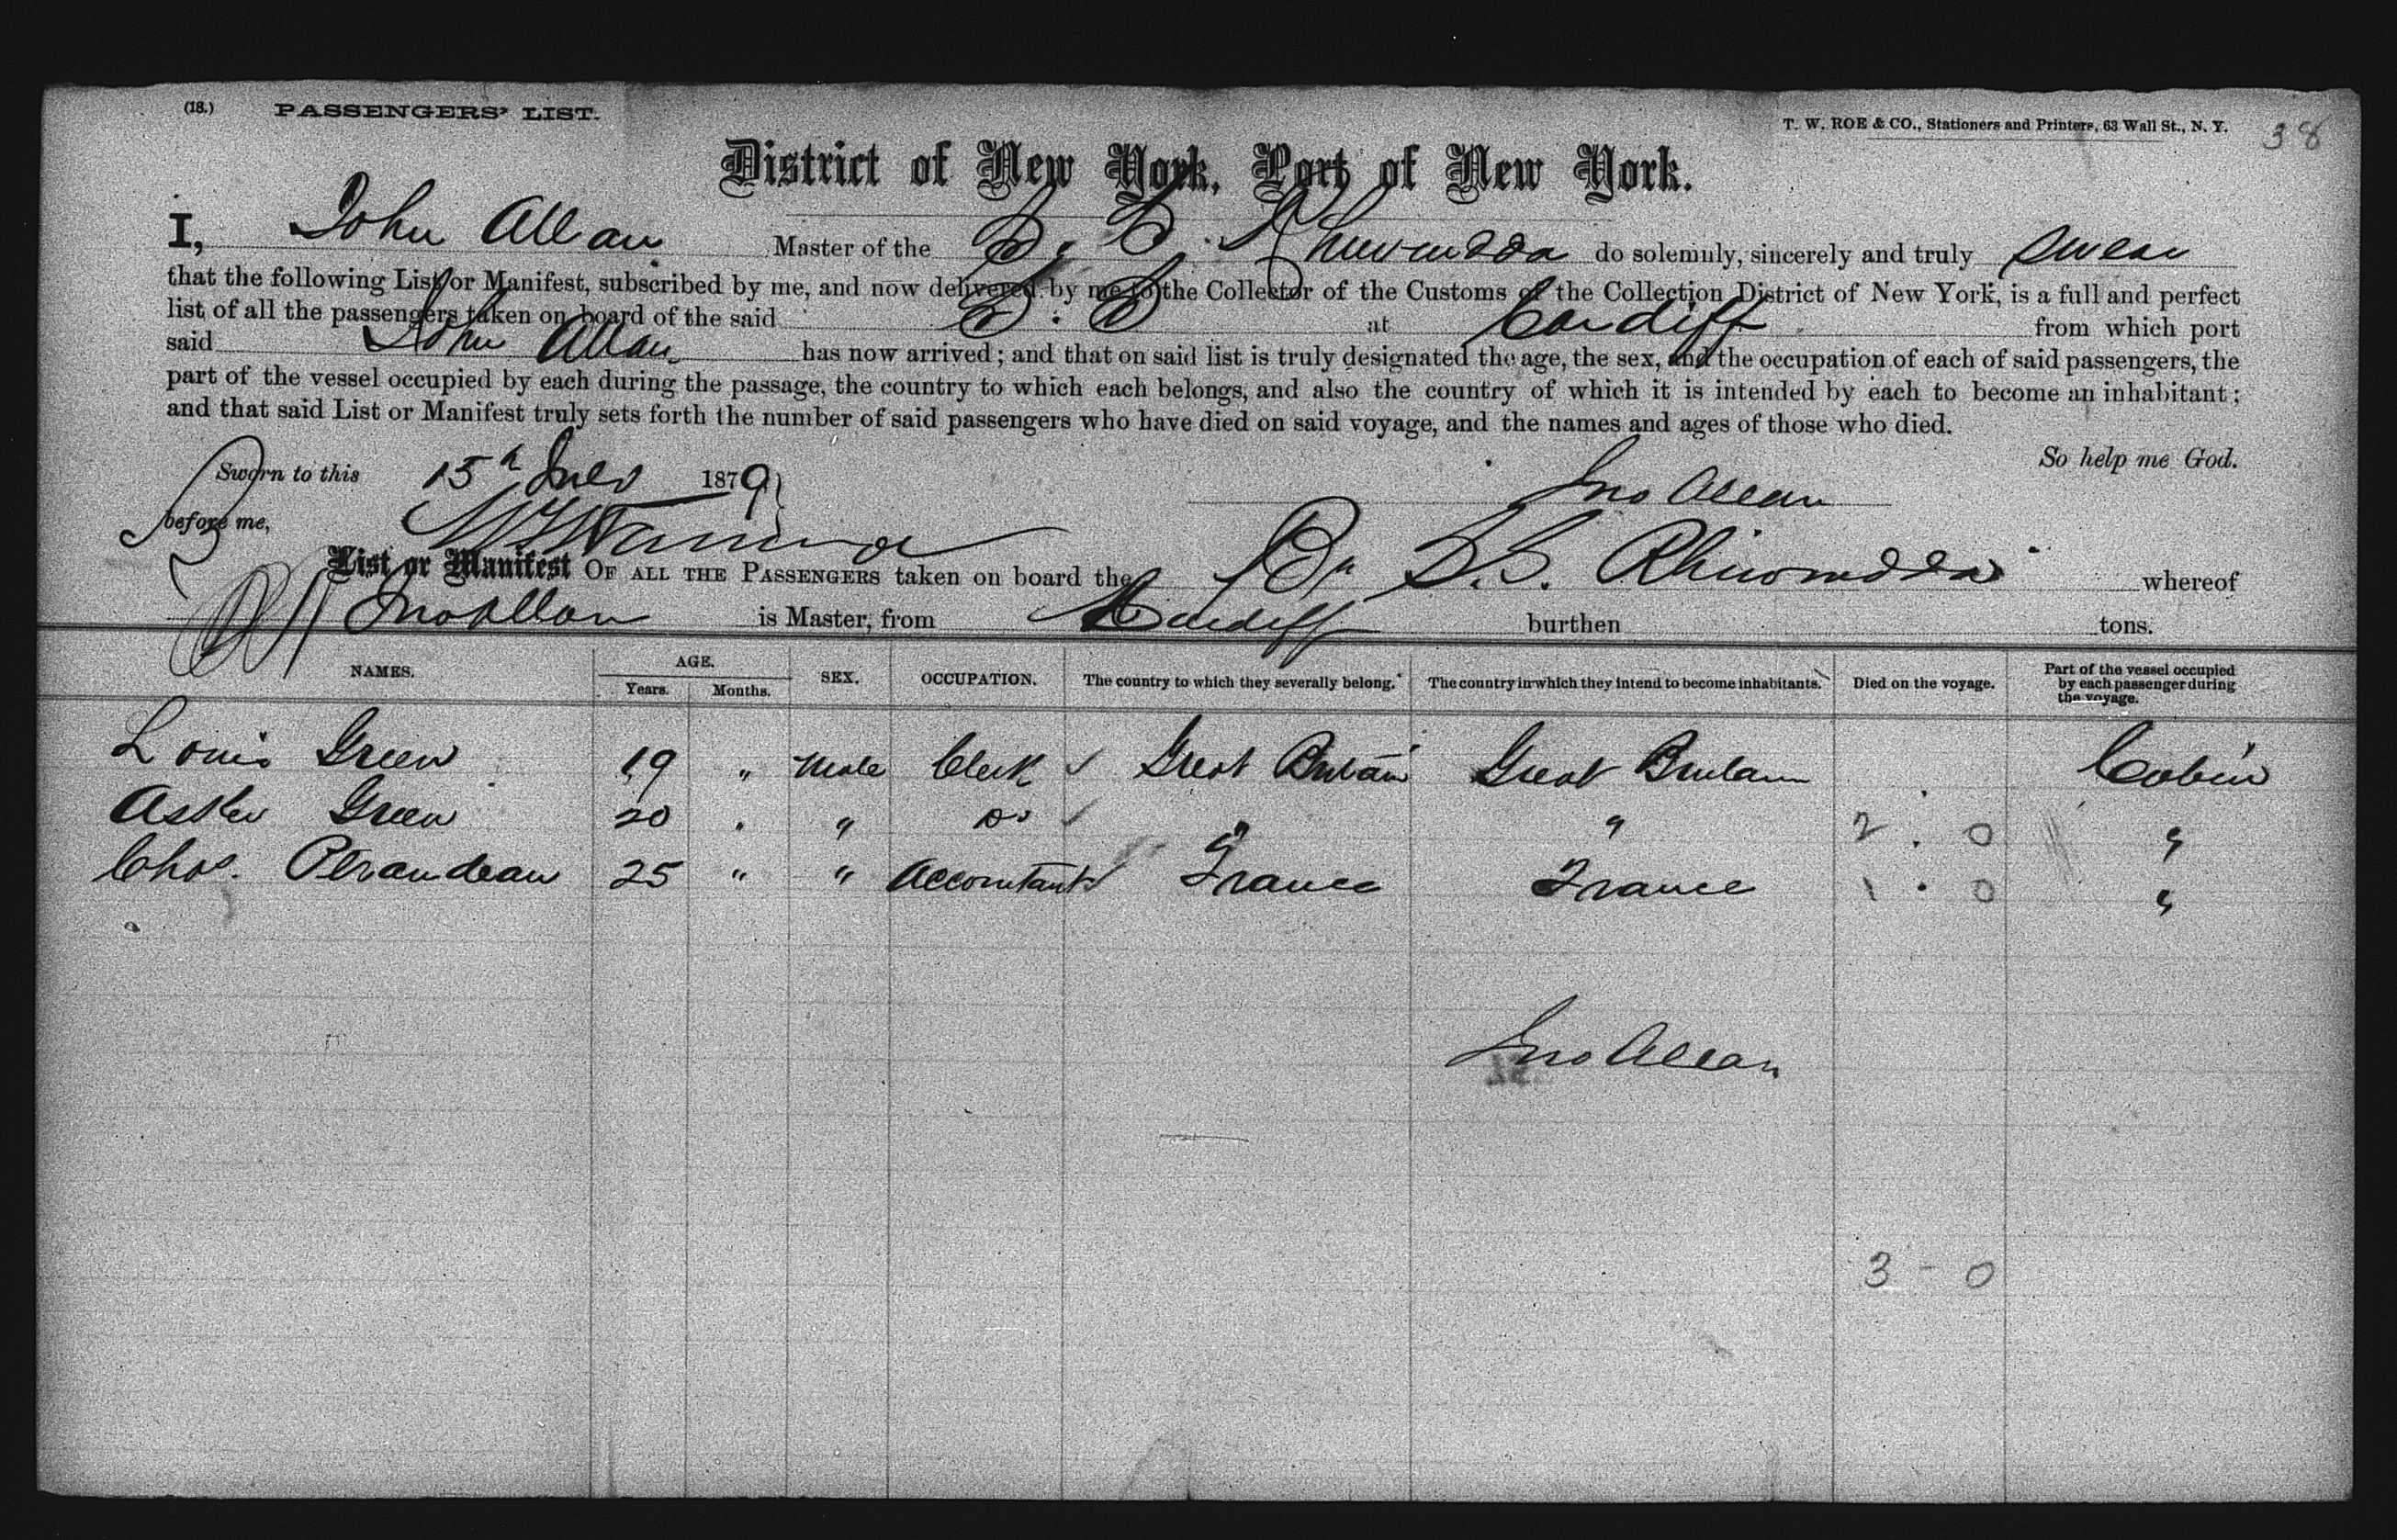 (18.) PASSENGERS' LIST.
T. W. ROE & CO., Stationers and Printers, 63 Wall St., N. Y. 38
District of New York, Port of New York.
I, John Allan Master of the S. S. Rhiwindda do solemnly, sincerely and truly swear
that the following List or Manifest, subscribed by me, and now delivered by me to the Collector of the Customs of the Collection District of New York, is a full and perfect
list of all the passengers taken on board of the said S. S at Cardiff from which port
said John Allan has now arrived; and that on said list is truly designated the age, the sex, and the occupation of each of said passengers, the
part of the vessel occupied by each during the passage, the country to which each belongs, and also the country of which it is intended by each to become an inhabitant;
and that said List or Manifest truly sets forth the number of said passengers who have died on said voyage, and the names and ages of those who died.
So help me God.
Sworn to this 15th July 1879
Jno Allan
before me,
List or Manifest OF ALL THE PASSENGERS taken on board the Br S.S. Rhiwindda whereof
Jno Allan is Master, from Cardiff burthen tons.
NAMES. AGE. Years. Months. SEX. OCCUPATION. The country to which they severally belong. The country in which they intend to become inhabitants. Died on the voyage. Part of the vessel occupied by each passenger during the voyage.
Louis Green 19 " Male Clerk ✓ Great Britain Great Britain Cabin
Green 20 " " Do ✓ " " 2 . 0 "
Chas. 25 " " Accountant ✓ France France 1 . 0 "
Jno Allan
3 - 0